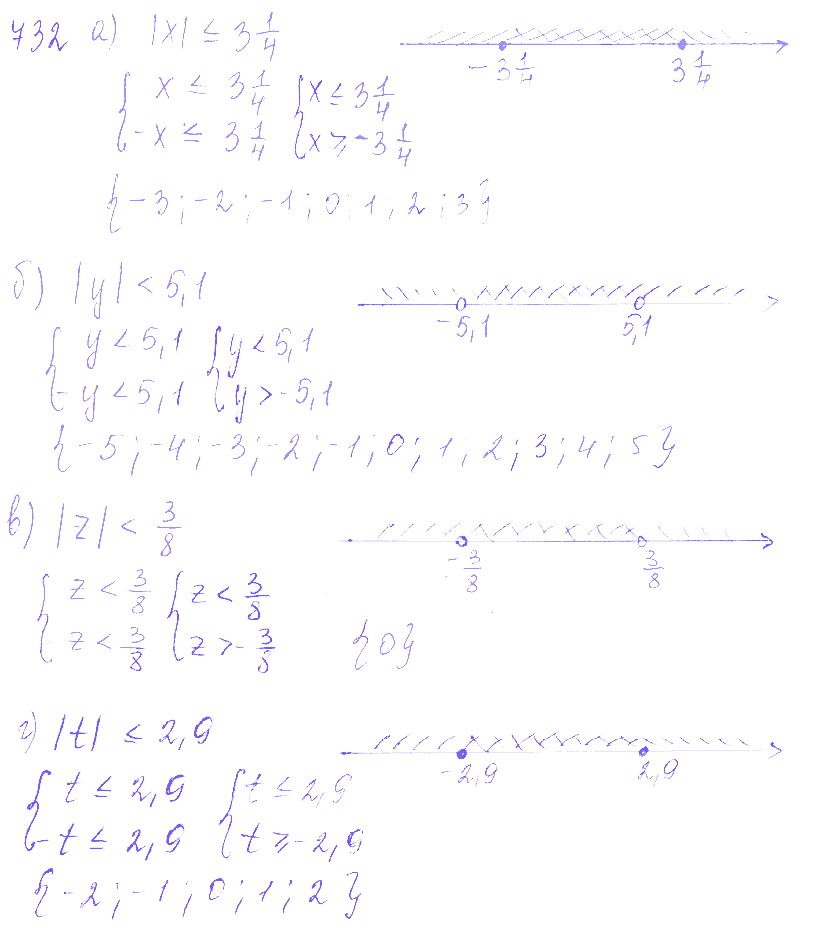 732 а) |x| ≤ 3 1/4
-3 1/4 3 1/4
{ x ≤ 3 1/4 { x ≤ 3 1/4
{ -x ≤ 3 1/4 { x ≥ -3 1/4
{-3; -2; -1; 0; 1, 2; 3}
б) |y| < 5,1
-5,1 5,1
{ y < 5,1 { y < 5,1
{ -y < 5,1 { y > -5,1
{-5; -4; -3; -2; -1; 0; 1; 2; 3; 4; 5}
в) |z| < 3/8
-3/8 3/8
{ z < 3/8 { z < 3/8
{ z < 3/8 { z > -3/8
{0}
г) |t| ≤ 2,9
-2,9 2,9
{ t ≤ 2,9 { t ≤ 2,9
{ -t ≤ 2,9 { t ≥ -2,9
{-2; -1; 0; 1; 2}